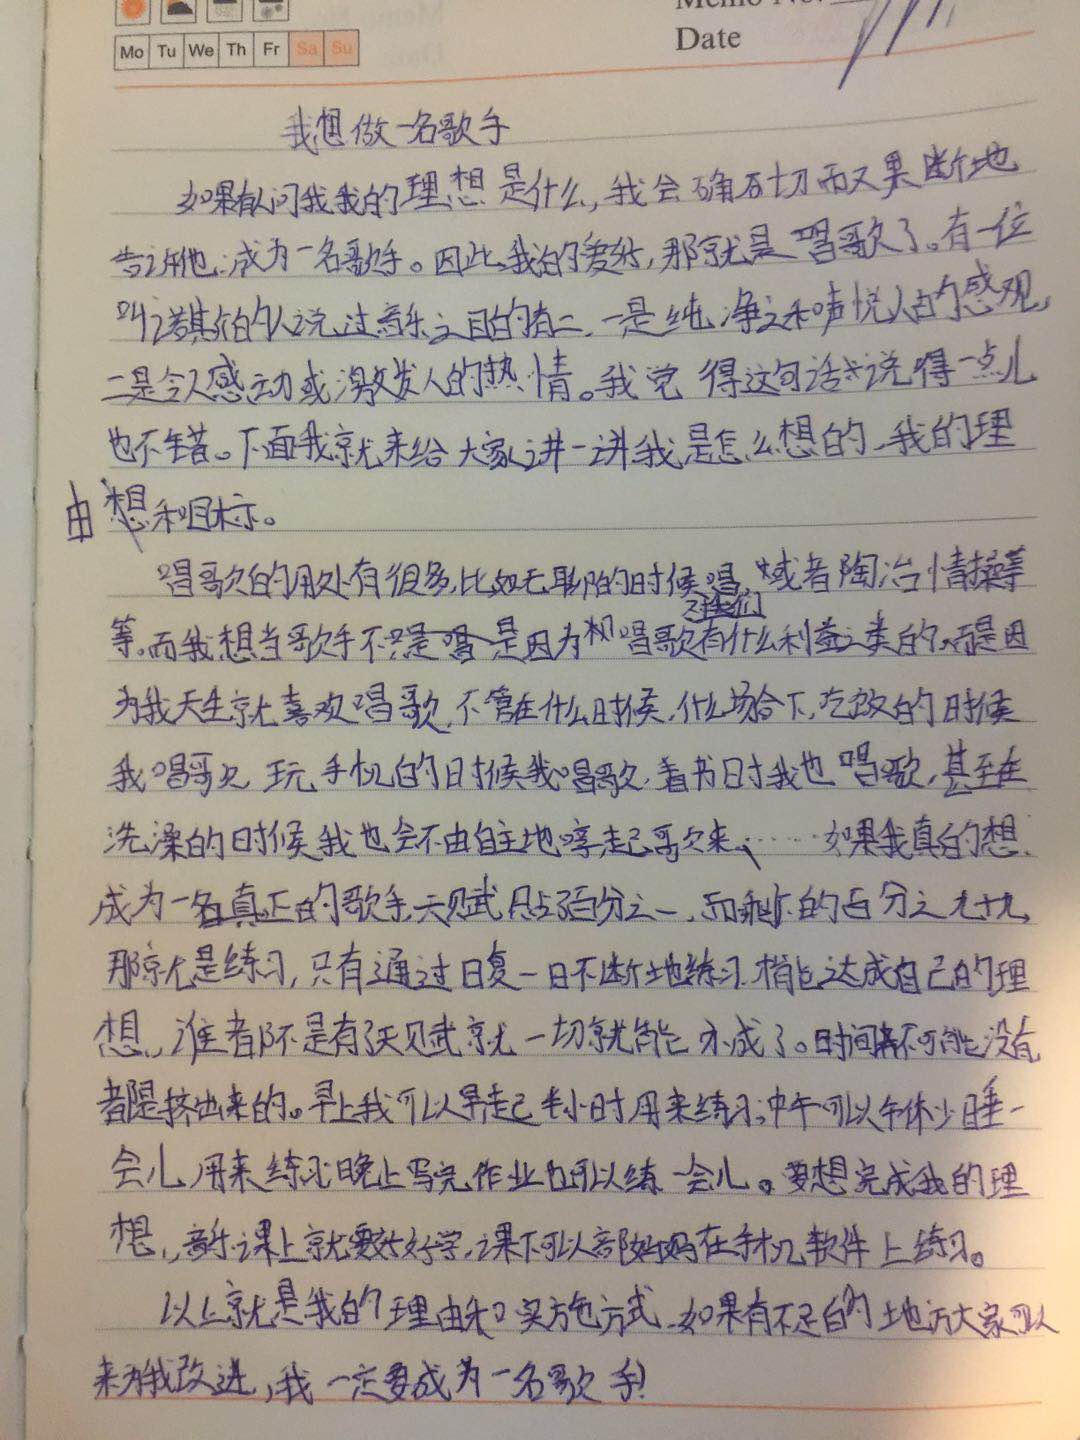 Memo No.
Mo Tu We Th Fr Sa Su
Date
我想做一名歌手
如果有人问我我的理想是什么,我会确切而又果断地
告诉他:成为一名歌手。因此,我的爱好,那就是唱歌了。有一位
叫诺其的人说过音乐之目的有二,一是纯净之和声悦人的感观,
二是令人感动或激发人的热情。我觉得这句话说得一点儿
也不错。下面我就来给大家讲一讲我是怎么想的、我的理
由和目标。
唱歌的用处有很多,比如无聊的时候唱,或者陶冶情操等
等。而我想当歌手不是因为唱歌对我们有什么利益之类的,而是因
为我天生就喜欢唱歌,不管在什么时候,什么场合下,吃饭的时候
我唱歌,玩手机的时候我唱歌,看书时我也唱歌,甚至在
洗澡的时候我也会不由自主地哼起歌来、……如果我真的想
成为一名真正的歌手,天赋只占了百分之一,而剩下的百分之九十九,
那就是练习,只有通过日复一日不断地练习,才能达成自己的理
想,谁都不是有了天赋就一切就能办成了。时间不可能没有
都是挤出来的。早上我可以早起半小时用来练习;中午可以午休少睡一
会儿用来练习;晚上写完作业也可以练一会儿。要想完成我的理
想,音乐课上就要好好学,课下可以帮妈妈在手机软件上练习。
以上就是我的理由和实施方式,如果有不足的地方大家可以
来为我改进,我一定要成为一名歌手!